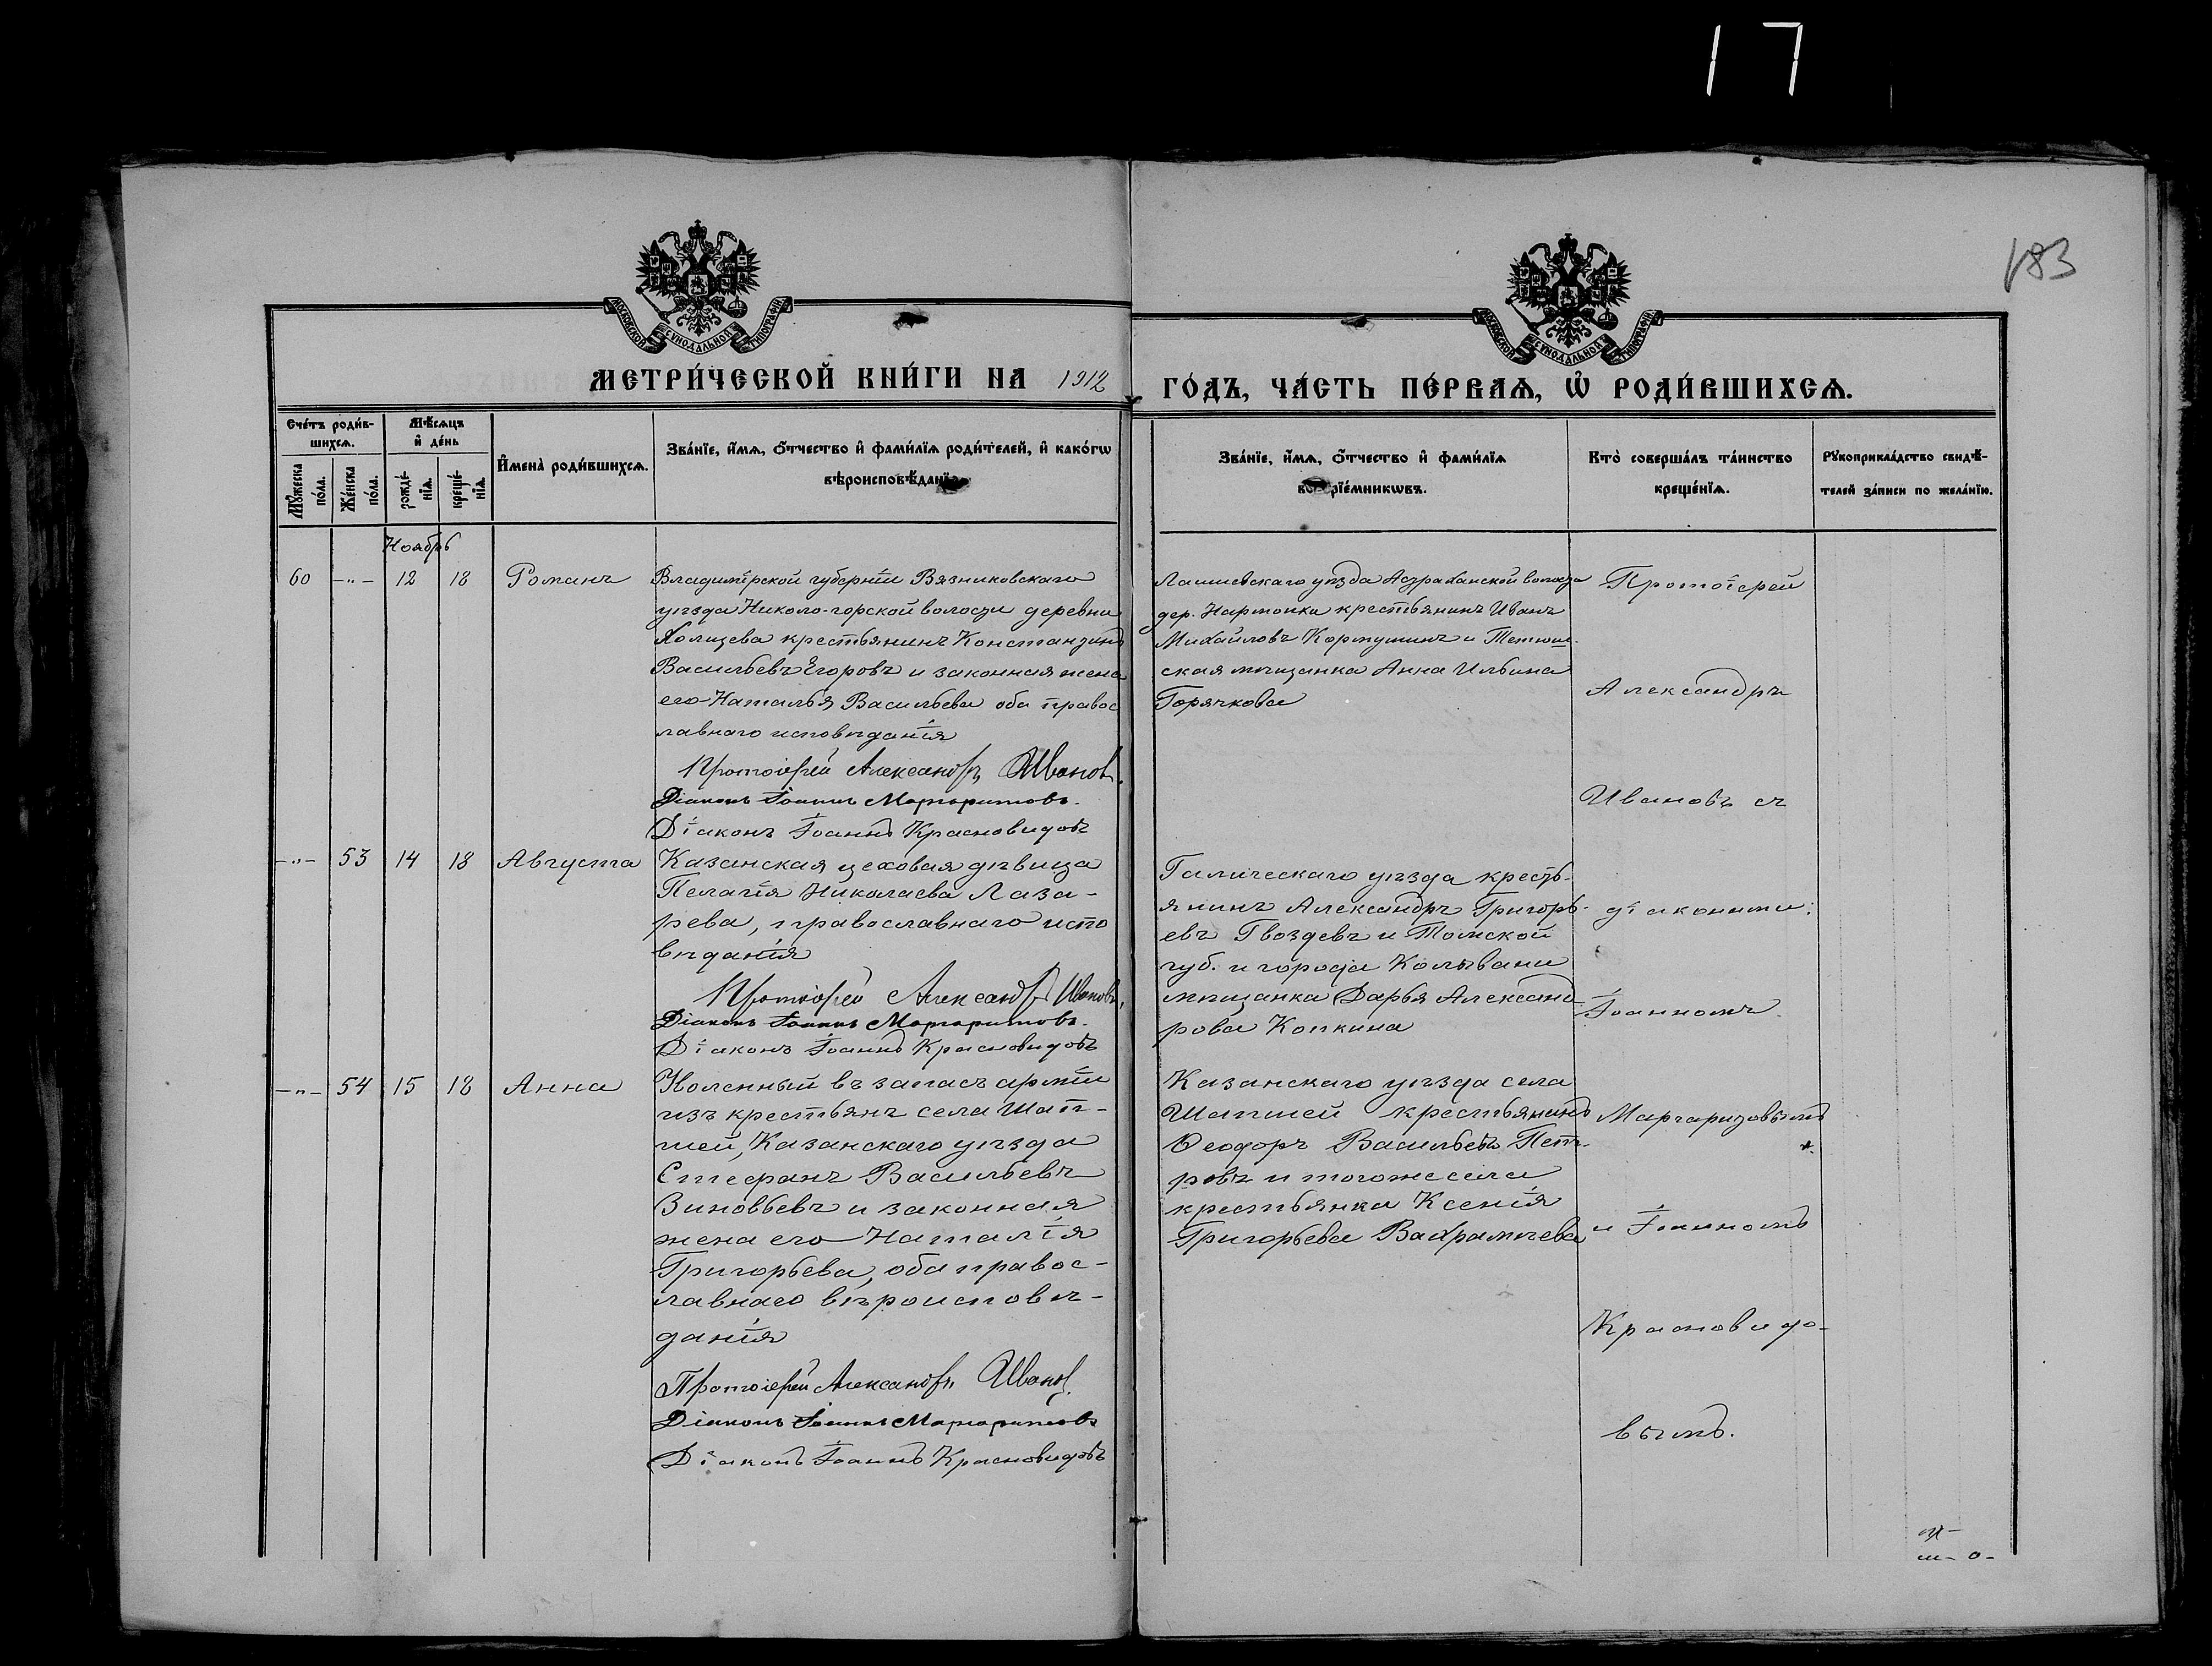 17
183
МОСКОВСКОЙ СѴНОДАЛЬНОЙ ТИПОГРАФІИ
МОСКОВСКОЙ СѴНОДАЛЬНОЙ ТИПОГРАФІИ
МЕТРИ́ЧЕСКОЙ КНИ́ГИ НА 1912
ГО́ДЪ, ЧА́СТЬ ПЕ́РВАѦ, Ѡ РОДИ́ВШИХСѦ.
Сче́тъ роди́в-
шихсѧ.
Мѣ́сѧцъ
и҆ де́нь
Мꙋ́жеска
по́ла.
Же́нска
по́ла.
рожде́-
нїѧ.
креще́-
нїѧ.
И҆мена̀ роди́вшихсѧ.
Зва́нїе, и҆́мѧ, ѻ҆́тчество и҆ фами́лїѧ роди́телей, и҆ како́гѡ
вѣроисповѣ́данїѧ.
Зва́нїе, и҆́мѧ, ѻ҆́тчество и҆ фами́лїѧ
воспрїе́мникѡвъ.
Кто̀ соверша́лъ та́инство
креще́нїѧ.
Рꙋкоприкла́дство свидѣ́-
телей за́писи по жела́нїю.
Ноябрь
60 -"- 12 18 Романъ
Владимірской губерніи Вязниковскаго
уѣзда Николо-горской волости деревни
Холщева крестьянинъ Константинъ
Васильевъ Егоровъ и законная жена
его Наталья Васильева оба правос
лавнаго исповѣданія
Протоіерей Александръ Ивановъ.
Діаконъ Іоаннъ Маргаритовъ.
Діаконъ Іоаннъ Красновидовъ
Лаишевскаго уѣзда Астраханской волости
дер. Нармонка крестьянинъ Иванъ
Михайловъ Кормушинъ и Тетюш-
ская мѣщанка Анна Ильина
Горячкова
-"- 53 14 18 Августа
Казанская цеховая дѣвица
Пелагія Николаева Лаза-
рева, православнаго испо
вѣданія
Протоіерей Александръ Ивановъ,
Діаконъ Іоаннъ Маргаритовъ.
Діаконъ Іоаннъ Красновидовъ
Галическаго уѣзда кресть-
янинъ Александръ Григорь-
евъ Гвоздевъ и Томской
губ. и города Колывани
мѣщанка Дарья Александ
рова Копкина
-"- 54 15 18 Анна
Уволенный въ запасъ арміи
изъ крестьянъ села Шап-
шей, Казанскаго уѣзда
Стефанъ Васильевъ
Зиновьевъ и законная
жена его Наталія
Григорьева, оба правос-
лавнаго вѣроисповѣ-
данія
Протоіерей Александръ Ивановъ.
Діаконъ Іоаннъ Маргаритовъ
Діаконъ Іоаннъ Красновидовъ
Казанскаго уѣзда села
Шапшей крестьянинъ
Ѳеодоръ Васильевъ Пет-
ровъ и того же села
крестьянка Ксенія
Григорьева Вахрамѣева
Протоіерей
Александръ
Ивановъ съ
діаконами:
Іоанномъ
Маргаритовымъ
и Іоанномъ
Красновидо-
вымъ.